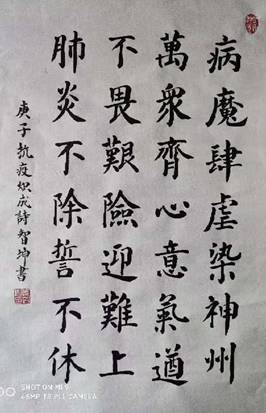 病魔肆虐染神州
萬衆齊心意氣遒
不畏艱險迎難上
肺炎不除誓不休
庚子抗疫炽成詩智坤書
SHOT ON MI 9
48MP AI CAMERA